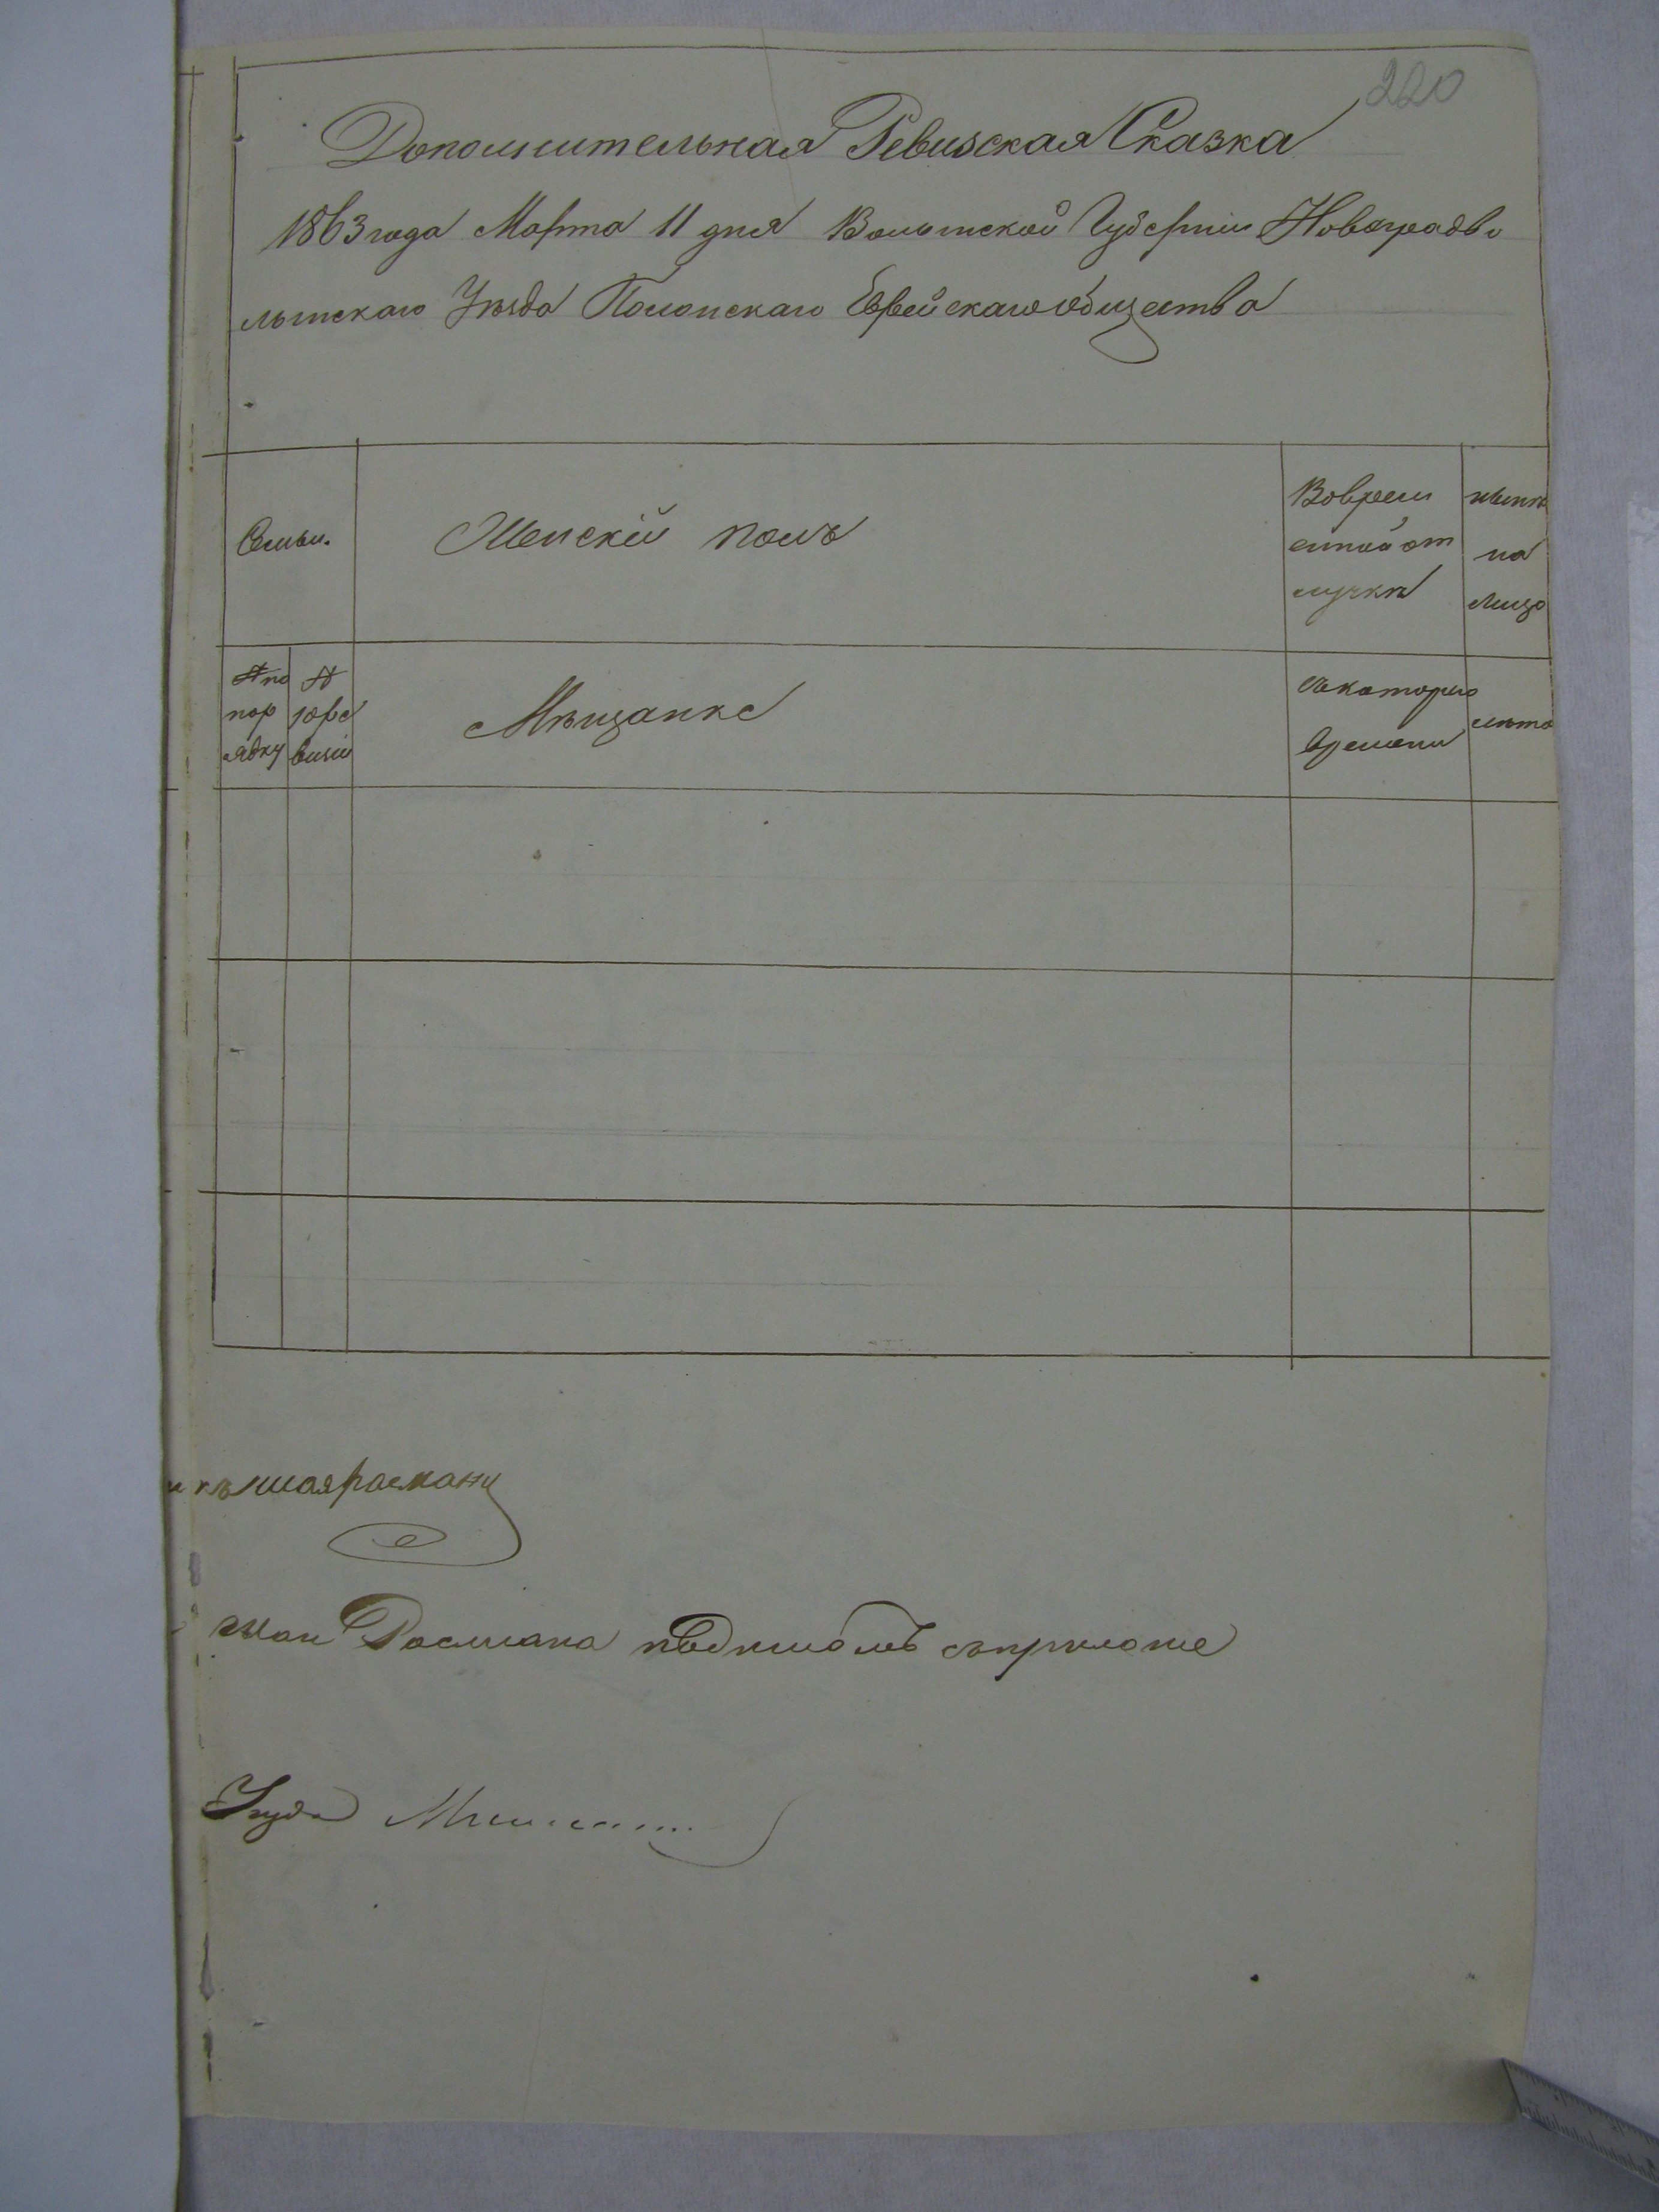 220
Дополнительная Ревизская Сказка
1863 года Марта 11 дня Волынской Губернии Новоградво
лынскаго Уѣзда Полонскаго Еврейскаго общества
Семьи.
Женскій полъ
Вовреме
нной от
лучкѣ
нынѣ
на
лицо
№ по
пор
ядку
№
10 ре
визіи
Мѣщанке
съ котораго
времени
лѣта
Расмана съприложе